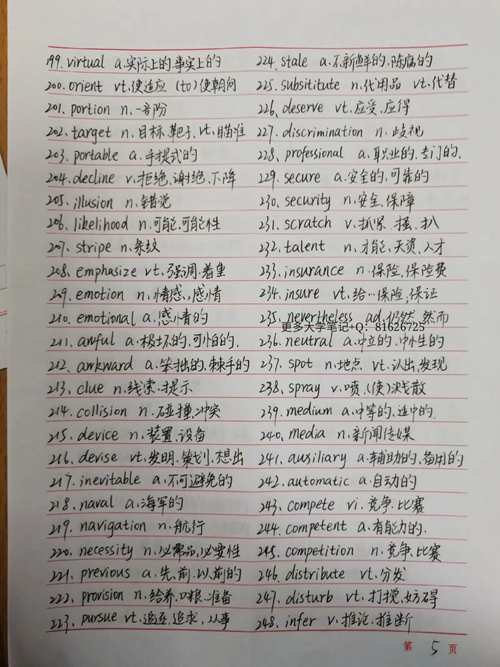 199. virtual a.实际上的.事实上的
200. orient vt.使适应 (to)使朝向
201. portion n.一部阶
202. target n.目标.靶子.vt.瞄准
203. portable a.手提式的
204. decline v.拒绝.谢绝.下降
205. illusion n.错觉
206. likelihood n.可能.可能性
207. stripe n.条纹
208. emphasize vt.强调.着重
209. emotion n.情感.感情
210. emotional a.感情的
211. awful a.极坏的.可怕的.
212. awkward a.笨拙的.棘手的
213. clue n.线索.提示
214. collision n.碰撞.冲突
215. device n.装置.设备
216. devise vt.发明.策划.想出
217. inevitable a.不可避免的
218. naval a.海军的
219. navigation n.航行
220. necessity n.必需品.必要性
221. previous a.先前.以前的
222. provision n.给养.口粮.准备
223. pursue vt.追逐.追求.从事
224. stale a.不新鲜的.陈腐的
225. subsititute n.代用品 vt.代替
226. deserve vt.应受.应得
227. discrimination n.歧视
228. professional a.职业的.专门的.
229. secure a.安全的.可靠的
230. security n.安全.保障
231. scratch v.抓.搔.扒
232. talent n.才能.天资.人才
233. insurance n.保险.保险费
234. insure vt.给…保险.保证
235. nevertheless ad.仍然.然而
236. neutral a.中立的.中性的
237. spot n.地点 vt.认出.发现
238. spray v.喷.(使)溅散
239. medium a.中等的.适中的.
240. media n.新闻传媒
241. ausiliary a.辅助的.备用的
242. automatic a.自动的
243. compete vi.竞争.比赛
244. competent a.有能力的.
245. competition n.竞争.比赛
246. distribute vt.分发
247. disturb vt.打搅.妨碍
248. infer v.推论.推断
更多大学笔记+Q：81626725
第 5 页